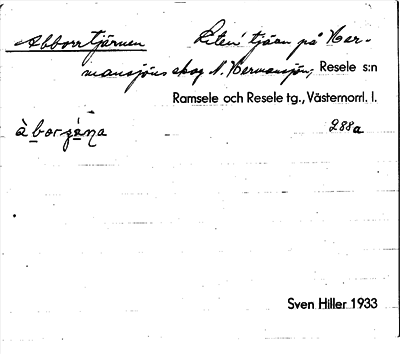 Abborrtjärnen Liten tjärn på Her-
mansjöns skog N. Hermansjön, Resele s:n
Ramsele och Resele tg., Västernorrl. l.
àbor-ʒána 288a
Sven Hiller 1933